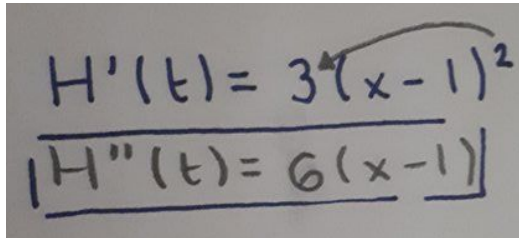 H'(t) = 3(x-1)²
H"(t) = 6(x-1)